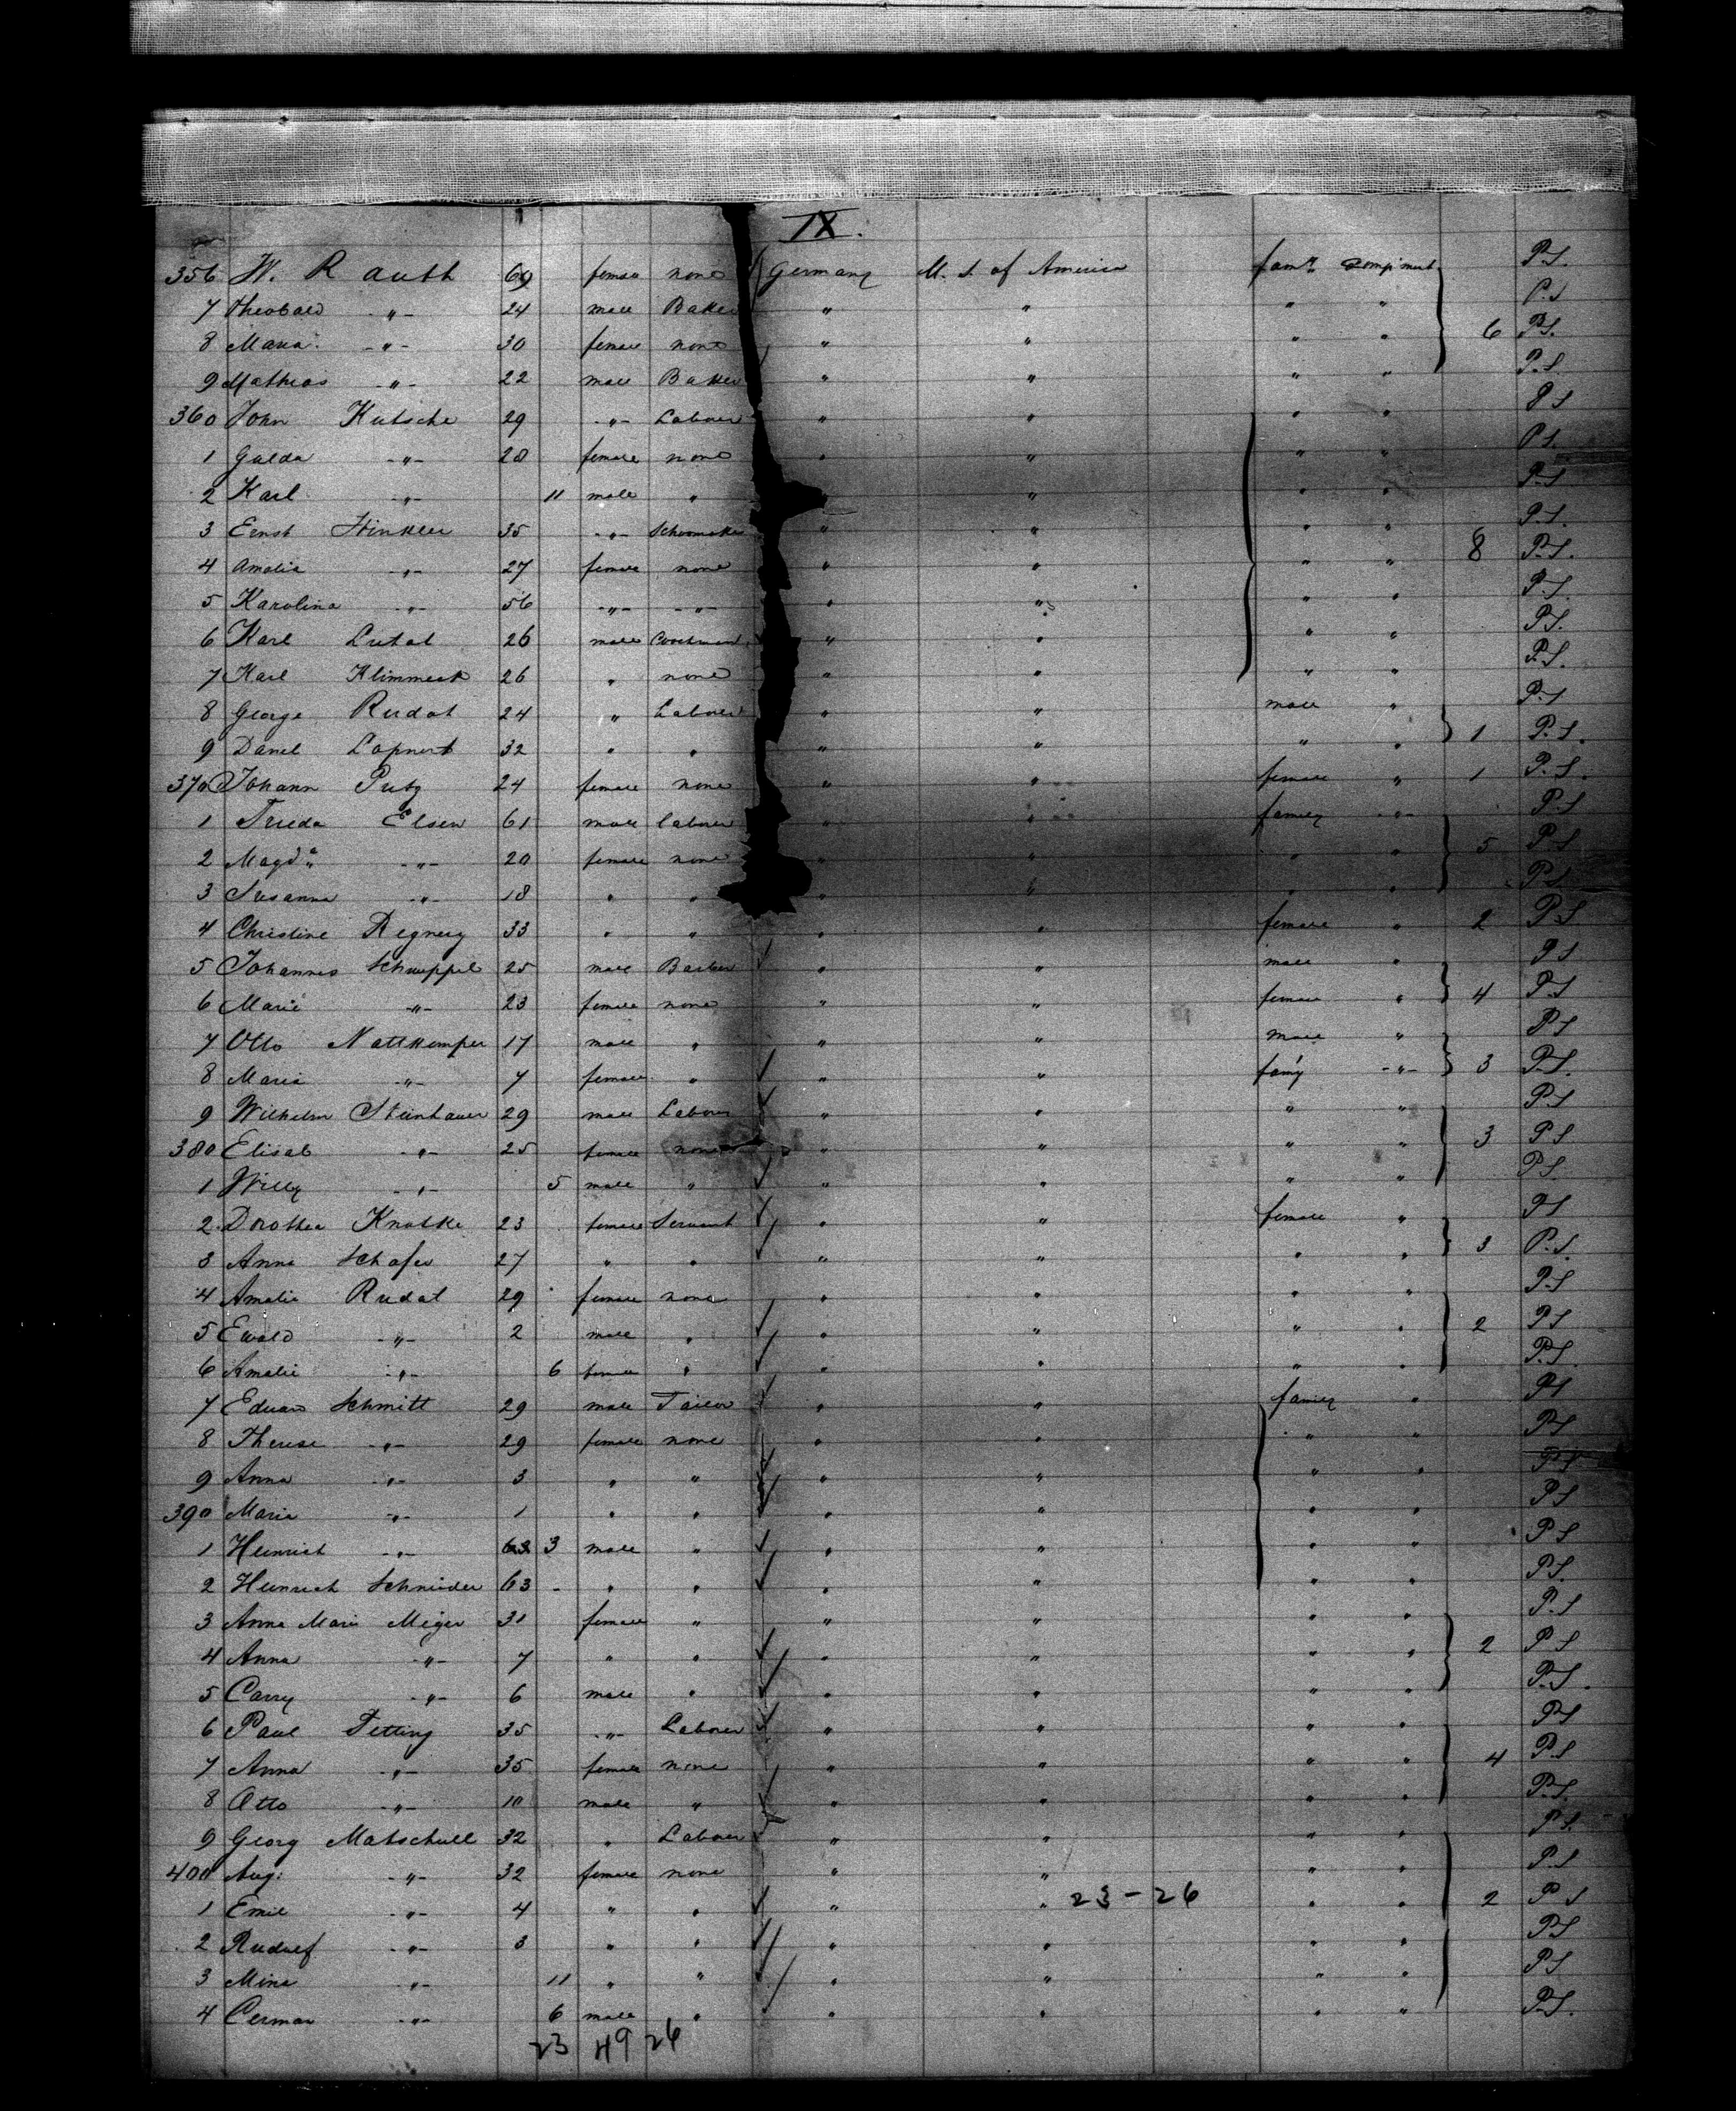 IX.
356 W. Rauth 69 female none Germany U. S. of America famy. Compmnt P.S.
7 Theobald -"- 24 male Baker " " " " P.S
8 Maria -"- 30 female none " " " " 6 P.S.
9 Mathias -"- 22 male Baker " " " " P.S.
360 John Kutsche 29 -"- Labourer " " " " P S
1 -"- 28 female none " " " " P S.
2 Karl -"- 11 male " " " " " P.S
3 Ernst Hinkler 35 -"- " " " " P.S.
4 Amalie -"- 27 female none " " " " 8 P.S.
5 Karolina -"- 56 -"- -"- " " " " P.S.
6 Karl 26 male " " " " P.S.
7 Karl Klimmeck 26 " none " " " " P.S.
8 George Rudat 24 " Labourer " " male " P.S
9 Daniel 32 " " " " " " 1 P.S.
370 Johann Putz 24 female none " " female " 1 P.S.
1 Elsen 61 male labourer " " family -"- P.S
2 Magda. -"- 20 female none " " " " 5 P S
3 Susanna -"- 18 " " " " " " P.S
4 Christine Regnery 33 " " " " female " 2 P S
5 Johannes Schneppel 25 male Barber " " male " P S
6 Marie -"- 23 female none " " female " 4 P.S
7 Otto Nattkemper 17 male " " " male " P S
8 Maria -"- 7 female " " " famy -"- 3 P.S.
9 Wilhelm Steinhauer 29 male Labour " " " " P.S
380 Elisab -"- 25 female none " " " " 3 P S
1 Willy -"- 5 male " " " " " P.S.
2 Dorothea Knatke 23 female Servant " " female " P S
3 Anna Schafer 27 " " " " " " 3 P.S.
4 Amalie Rudat 29 female none " " " " P.S
5 Ewald -"- 2 male " " " " " 2 P S
6 Amalie -"- 6 female " " " " " P.S.
7 Eduard Schmitt 29 male Tailor " " family " P S
8 Therese -"- 29 female none " " " " P S
9 Anna -"- 3 " " " " " " P S
390 Maria -"- 1 " " " " " " P S
1 Heinrich -"- 3 male " " " " " P S
2 Heinrich Schneider 63 - " " " " " " P S.
3 Anna Marie Meyer 31 female " " " " " P.S
4 Anna -"- 7 " " " " " " 2 P S
5 Carry -"- 6 male " " " " " P.S.
6 Paul Tetting 35 -"- Labourer " " " " P S
7 Anna -"- 35 female none " " " " 4 P.S
8 Otto -"- 10 male " " " " " P.S.
9 Georg Matschull 32 " Labourer " " " " P.S.
400 Aug. -"- 32 female none " " " " P.S
1 Emil -"- 4 " " " " 23-26 " " 2 P S
2 Rudolf -"- 3 " " " " " " P S
3 Mina -"- 11 " " " " " " P S
4 -"- 6 male " " " " " P.S.
23 49 26